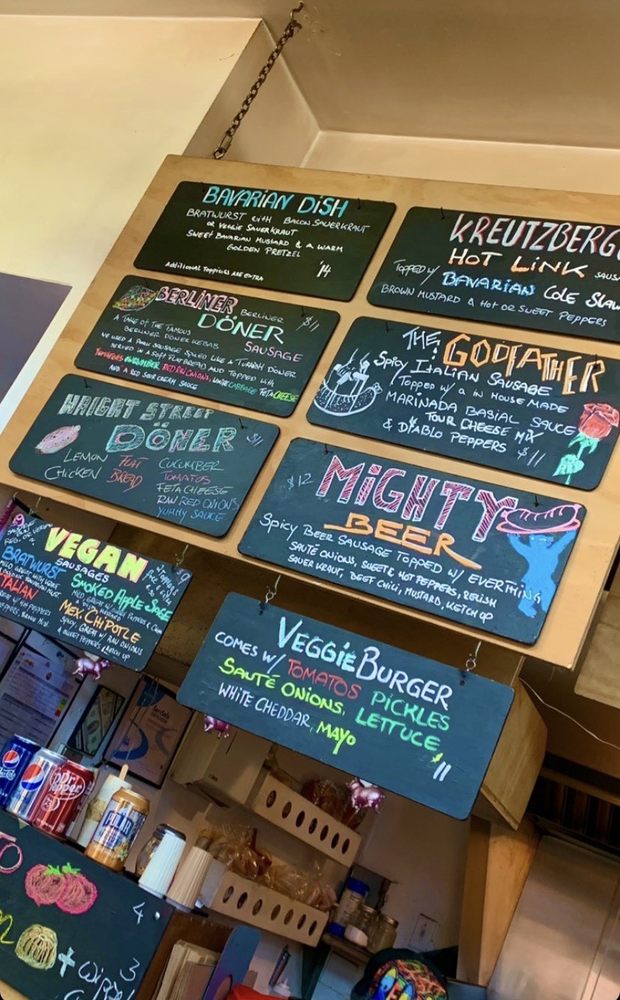 BAVARIAN DISH
BRATWURST with BACON SAUERKRAUT
OR VEGGIE SAUERKRAUT
SWEET BAVARIAN MUSTARD & A WARM
GOLDEN PRETZEL
Additional Toppings ARE EXTRA
'14
KREUTZBERG
HOT LINK SAUS
TOPPED w/ BAVARIAN COLE SLAW
BROWN MUSTARD & HOT OR SWEET PEPPERS
BERLINER BERLINER $11
DÖNER
SAUSAGE
A TAKE OF THE FAMOUS
BERLINER DÖNER KEBAB
WE USED A PORK SAUSAGE SPICED LIKE A TURKISH DÖNER
SERVED IN A SOFT FLATBREAD AND TOPPED WITH
TOMATOES CUCUMBER RED RAW ONIONS, WHITE CABBAGE FETA CHEESE
AND A RED SOUR CREAM SAUCE
THE GODFATHER
SPICY ITALIAN SAUSAGE
TOPPED w/ a IN HOUSE MADE
MARINADA BASIAL SAUCE
FOUR CHEESE MIX
& DIABLO PEPPERS $11
WRIGHT STREET $11
DÖNER
LEMON FLAT CUCUMBER
CHICKEN BREAD TOMATOS
FETA CHEESE
RAW RED ONIONS
YUMMY SAUCE
$12 MIGHTY
BEER
SPICY BEER SAUSAGE TOPPED w/ EVERYTHING
SAUTÉ ONIONS, SWEET & HOT PEPPERS, RELISH
SAUER KRAUT, BEEF CHILI, MUSTARD, KETCH UP
VEGAN
SAUSAGES
BRATWURST
ITALIAN
SMOKED APPLE SAGE
MEX CHIPOTLE
SPICY, GREAT w/ RAW ONIONS
& SWEET PEPPERS & KETCH UP
VEGGIE BURGER
COMES w/ TOMATOS PICKLES
SAUTÉ ONIONS, LETTUCE
WHITE CHEDDAR, MAYO
11
pepsi
Dr Pepper
4
3